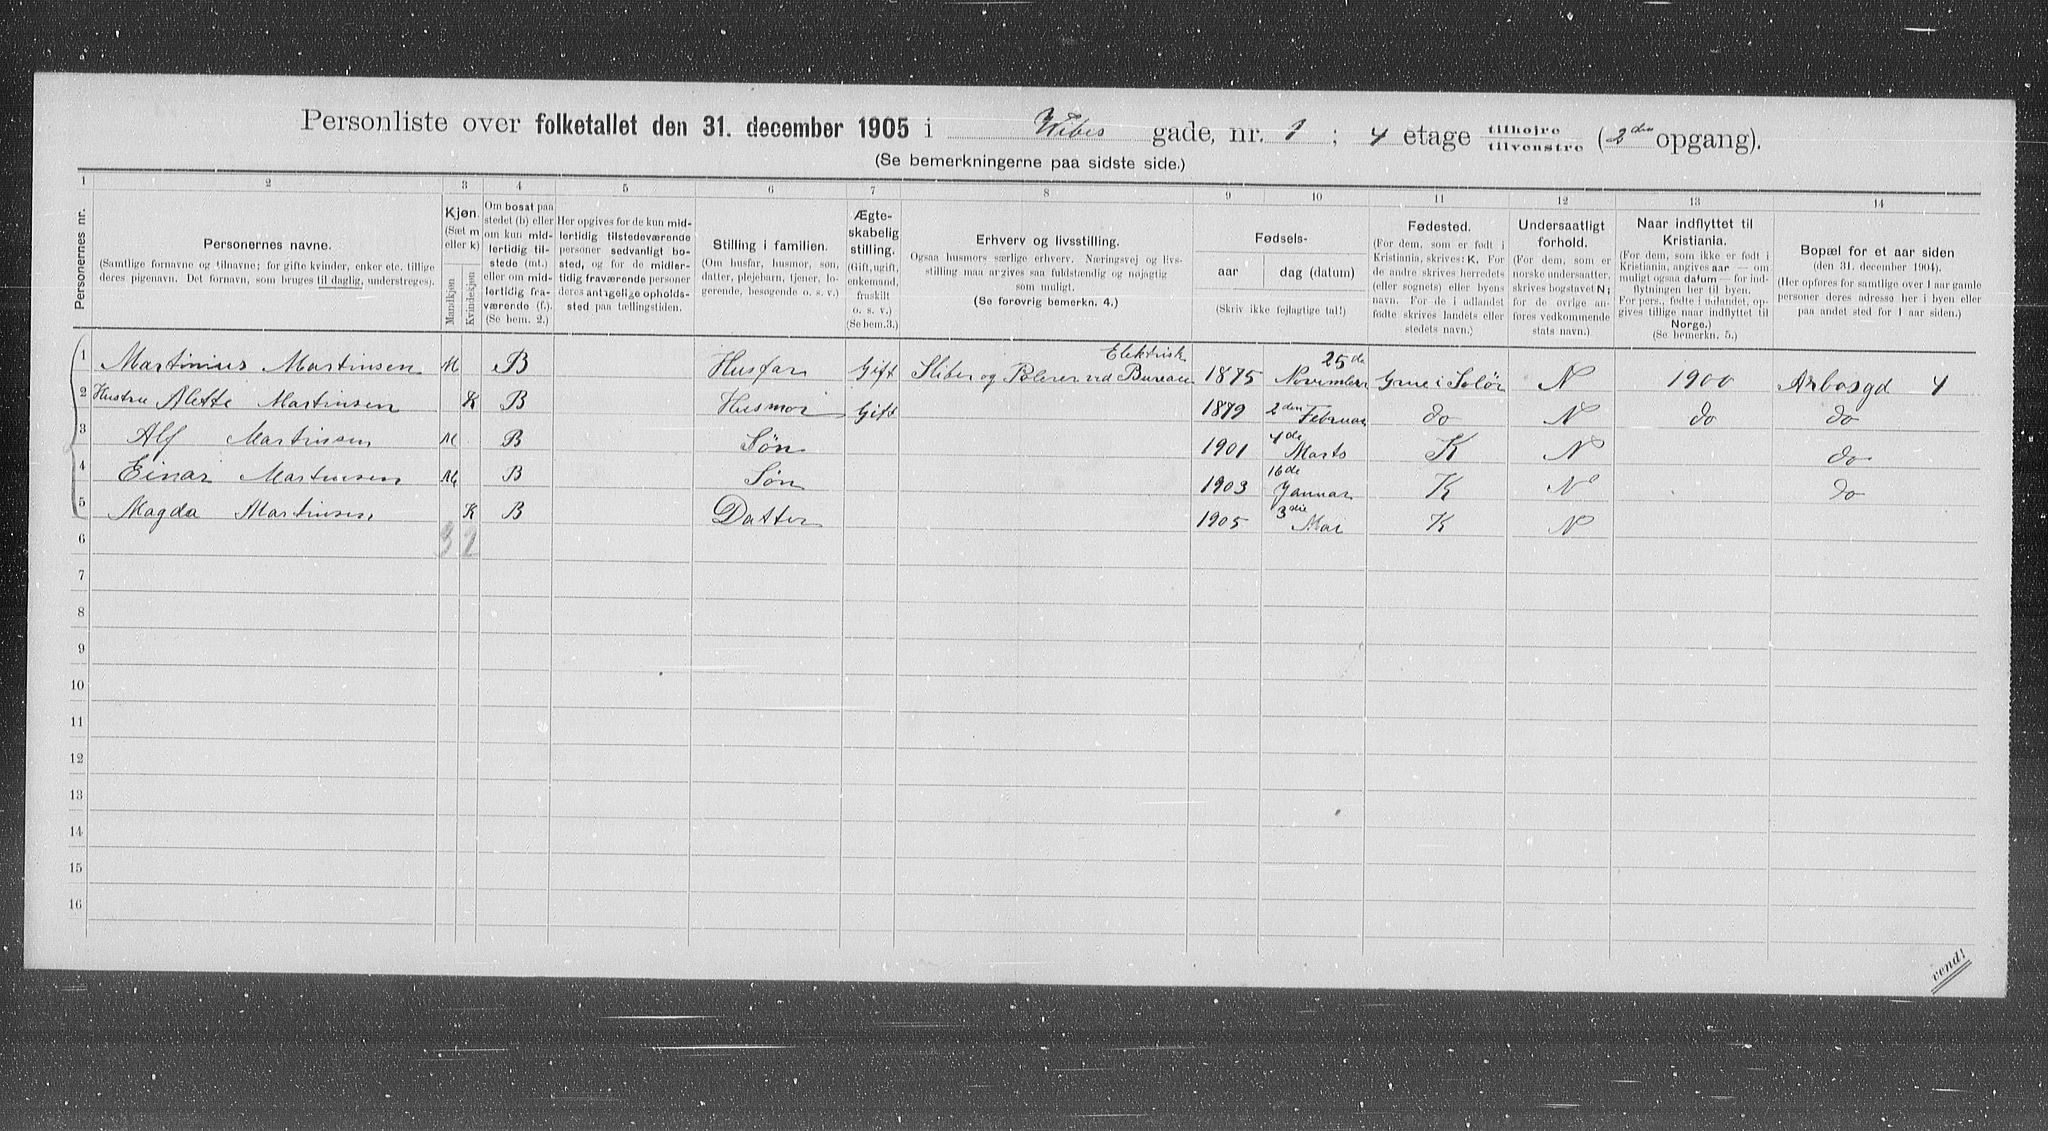 Personliste over folketallet den 31. december 1905 i Wibes gade, nr. 1 ; 4 etage tilhøjre tilvenstre (2den opgang).
(Se bemerkningerne paa sidste side.)
1 2 3 4 5 6 7 8 9 10 11 12 13 14
Personernes nr.
Personernes navne.
(Samtlige fornavne og tilnavne; for gifte kvinder, enker etc. tillige
deres pigenavn. Det fornavn, som bruges til daglig, understreges).
Kjøn.
(Sæt m
eller k)
Mandkjøn
Kvindekjøn
Om bosat paa
stedet (b) eller
om kun mid-
lertidig til-
stede (mt.)
eller om mid-
lertidig fra-
værende (f.).
(Se bem. 2.)
Her opgives for de kun mid-
lertidig tilstedeværende
personer sedvanlig bo-
sted, og for de midler-
tidig fraværende personer
deres antagelige opholds-
sted paa tællingstiden.
Stilling i familien.
(Om husfar, husmor, søn,
datter, plejebarn, tjener, lo-
gerende, besøgende o. s. v.)
Ægte-
skabelig
stilling.
(Gift, ugift,
enkemand,
fraskilt
o. s. v.)
(Se bem.3.)
Erhverv og livsstilling.
Ogsaa husmors særlige erhverv. Næringsvej og livs-
stilling maa angives saa fuldstændig og nøjagtig
som muligt.
(Se forøvrig bemerkn. 4.)
Fødsels-
aar
dag (datum)
(Skriv ikke fejlagtige tal!)
Fødested.
(For dem, som er født i
Kristiania, skrives: K. For
de andre skrives herredets
(eller sognets) eller byens
navn. For de i udlandet
fødte skrives landets eller
stedets navn.)
Undersaatligt
forhold.
(For dem, som er
norske undersaatter,
skrives bogstavet N;
for de øvrige an-
føres vedkommende
stats navn.)
Naar indflyttet til
Kristiania.
(For dem, som ikke er født i
Kristiania, angives aar — om
muligt ogsaa datum — for ind-
flytningen her til byen.
For pers., fødte i udlandet, op-
gives tillige naar indflyttet til
Norge.)
(Se bemerkn. 5.)
Bopæl for et aar siden
(den 31. december 1904).
(Her opføres for samtlige over 1 aar gamle
personer deres adresse her i byen eller
paa andet sted for 1 aar siden.)
1 Martinius Martinsen M B Husfar Gift Sliber og Polerer ved Elektrisk Bureau 1875 25de November Grue i Solør N 1900 4
2 Hustru Alette Martinsen K B Husmor Gift 1879 2den Februar do N do do
3 Alf Martinsen M B Søn 1901 4de Marts K N do
4 Einar Martinsen M B Søn 1903 16de Januar K N do
5 Magda Martinsen K B Datter 1905 3die Mai K N
6 3 2
7
8
9
10
11
12
13
14
15
16
vend!